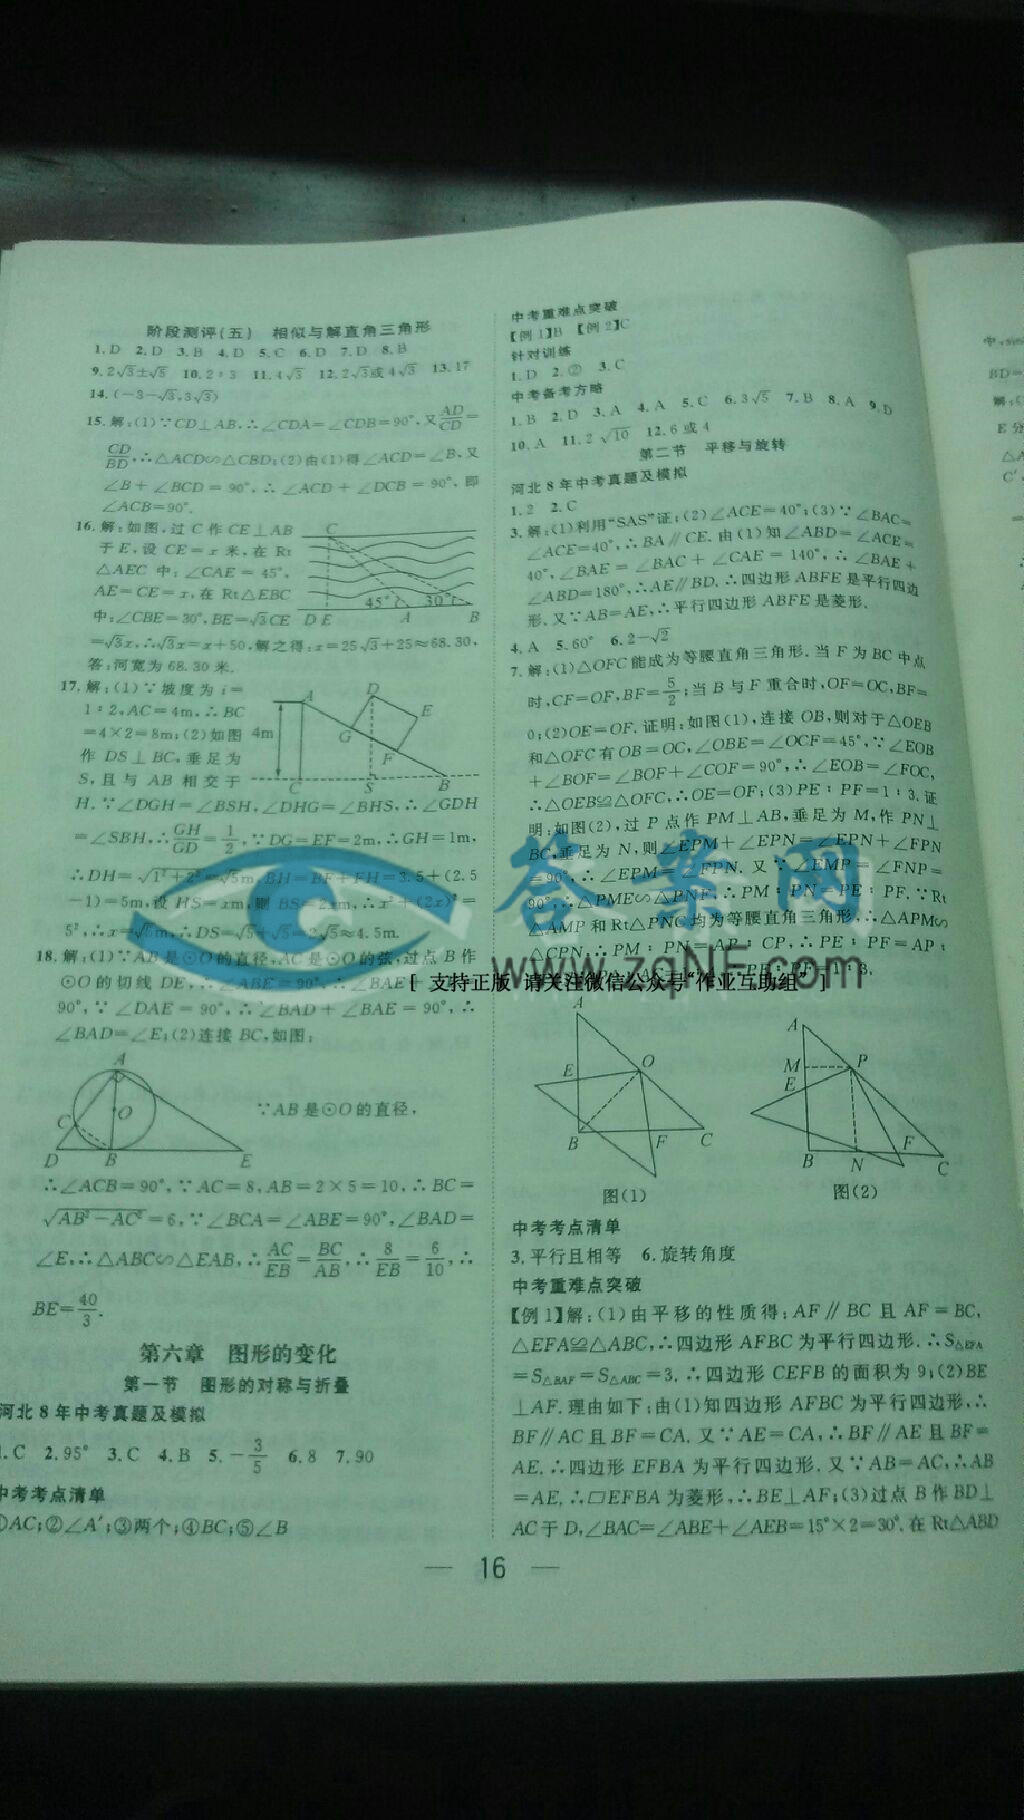 阶段测评(五) 相似与解直角三角形
1. D 2. D 3. B 4. D 5. C 6. D 7. D 8. B
9. 2√3±√5 10. 2:3 11. 4√3 12. 2√3或4√3 13. 17
14. (-3-√3,3√3)
15. 解:(1)∵CD⊥AB,∴∠CDA=∠CDB=90°,又AD/CD=
CD/BD,∴△ACD∽△CBD;(2)由(1)得∠ACD=∠B,又
∠B+∠BCD=90°,∴∠ACD+∠DCB=90°,即
∠ACB=90°.
16. 解:如图,过C作CE⊥AB
于E,设CE=x米,在Rt
△AEC中:∠CAE=45°,
AE=CE=x,在Rt△EBC
中:∠CBE=30°,BE=√3CE
=√3x,∴√3x=x+50,解之得:x=25√3+25≈68.30,
答:河宽为68.30米.
C
45° 30°
D E A B
17. 解:(1)∵坡度为i=
1:2,AC=4m,∴BC
=4×2=8m;(2)如图
作DS⊥BC,垂足为
S,且与AB相交于
A D E
4m G F
C S B
H,∵∠DGH=∠BSH,∠DHG=∠BHS,∴∠GDH
=∠SBH,∴GH/GD=1/2,∵DG=EF=2m,∴GH=1m,
∴DH=√1²+2²=√5m,BH=BF+FH=3.5+(2.5
-1)=5m,设HS=xm,则BS=2xm,∴x²+(2x)²=
5²,∴x=√5m,∴DS=√5+√5=2√5≈4.5m.
18. 解:(1)∵AB是⊙O的直径,AC是⊙O的弦,过点B作
⊙O的切线DE,∴∠ABE=90°,∴∠BAE
90°,∵∠DAE=90°,∴∠BAD+∠BAE=90°,∴
∠BAD=∠E;(2)连接BC,如图:
A
C O
D B E
∵AB是⊙O的直径,
∴∠ACB=90°,∵AC=8,AB=2×5=10,∴BC=
√AB²-AC²=6,∵∠BCA=∠ABE=90°,∠BAD=
∠E,∴△ABC∽△EAB,∴AC/EB=BC/AB,∴8/EB=6/10,∴
BE=40/3.
第六章 图形的变化
第一节 图形的对称与折叠
河北8年中考真题及模拟
1. C 2. 95° 3. C 4. B 5. -3/5 6. 8 7. 90
中考考点清单
①AC;②∠A′;③两个;④BC;⑤∠B
中考重难点突破
【例1】B 【例2】C
针对训练
1. D 2. ② 3. C
中考备考方略
1. B 2. D 3. A 4. A 5. C 6. 3√5 7. B 8. A 9. D
10. A 11. 2√10 12. 6或4
第二节 平移与旋转
河北8年中考真题及模拟
1. 2 2. C
3. 解:(1)利用“SAS”证;(2)∠ACE=40°;(3)∵∠BAC=
∠ACE=40°,∴BA∥CE.由(1)知∠ABD=∠ACE=
40°,∠BAE=∠BAC+∠CAE=140°,∴∠BAE+
∠ABD=180°,∴AE∥BD,∴四边形ABFE是平行四边
形.又∵AB=AE,∴平行四边形ABFE是菱形.
4. A 5. 60° 6. 2-√2
7. 解:(1)△OFC能成为等腰直角三角形.当F为BC中点
时,CF=OF,BF=5/2;当B与F重合时,OF=OC,BF=
0;(2)OE=OF.证明:如图(1),连接OB,则对于△OEB
和△OFC有OB=OC,∠OBE=∠OCF=45°,∵∠EOB
+∠BOF=∠BOF+∠COF=90°,∴∠EOB=∠FOC,
∴△OEB≌△OFC,∴OE=OF;(3)PE:PF=1:3.证
明:如图(2),过P点作PM⊥AB,垂足为M,作PN⊥
BC,垂足为N,则∠EPM+∠EPN=∠EPN+∠FPN
=90°,∴∠EPM=∠FPN.又∵∠EMP=∠FNP=
90°,∴△PME∽△PNF,∴PM:PN=PE:PF.∵Rt
△AMP和Rt△PNC均为等腰直角三角形,∴△APM∽
△CPN,∴PM:PN=AP:CP,∴PE:PF=AP:
答案网
www.zqNF.com
[ 支持正版 请关注微信公众号“作业互助组” ]
A
E O
B F C
图(1)
A
M P
E
F
B N C
图(2)
中考考点清单
3. 平行且相等 6. 旋转角度
中考重难点突破
【例1】解:(1)由平移的性质得:AF∥BC且AF=BC,
△EFA≌△ABC,∴四边形AFBC为平行四边形.∴S△EFA
=S△BAF=S△ABC=3.∴四边形CEFB的面积为9;(2)BE
⊥AF.理由如下:由(1)知四边形AFBC为平行四边形,∴
BF∥AC且BF=CA.又∵AE=CA,∴BF∥AE且BF=
AE.∴四边形EFBA为平行四边形.又∵AB=AC,∴AB
=AE.∴□EFBA为菱形,∴BE⊥AF;(3)过点B作BD⊥
AC于D,∠BAC=∠ABE+∠AEB=15°×2=30°.在Rt△ABD
— 16 —
BD=
解:
E分